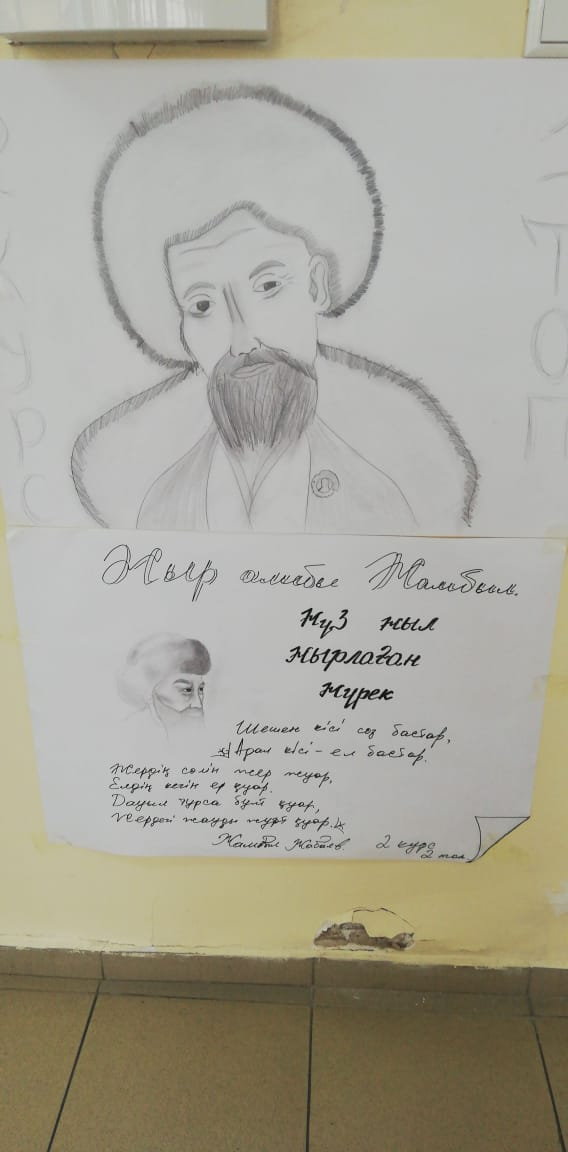 2 КУРС
2 ТОП
Жыр алыбы Жамбыл.
Жүз жыл
жырлаған
жүрек
Шешен кісі сөз бастар,
Арал кісі - ел бастар.
Жердің сөлін жер жуар,
Елдің кегін ер қуар.
Дауыл тұрса бұлт қуар,
Жердегі жауды жұрт қуар.
Жамбыл Жабаев. 2 курс
2 топ.